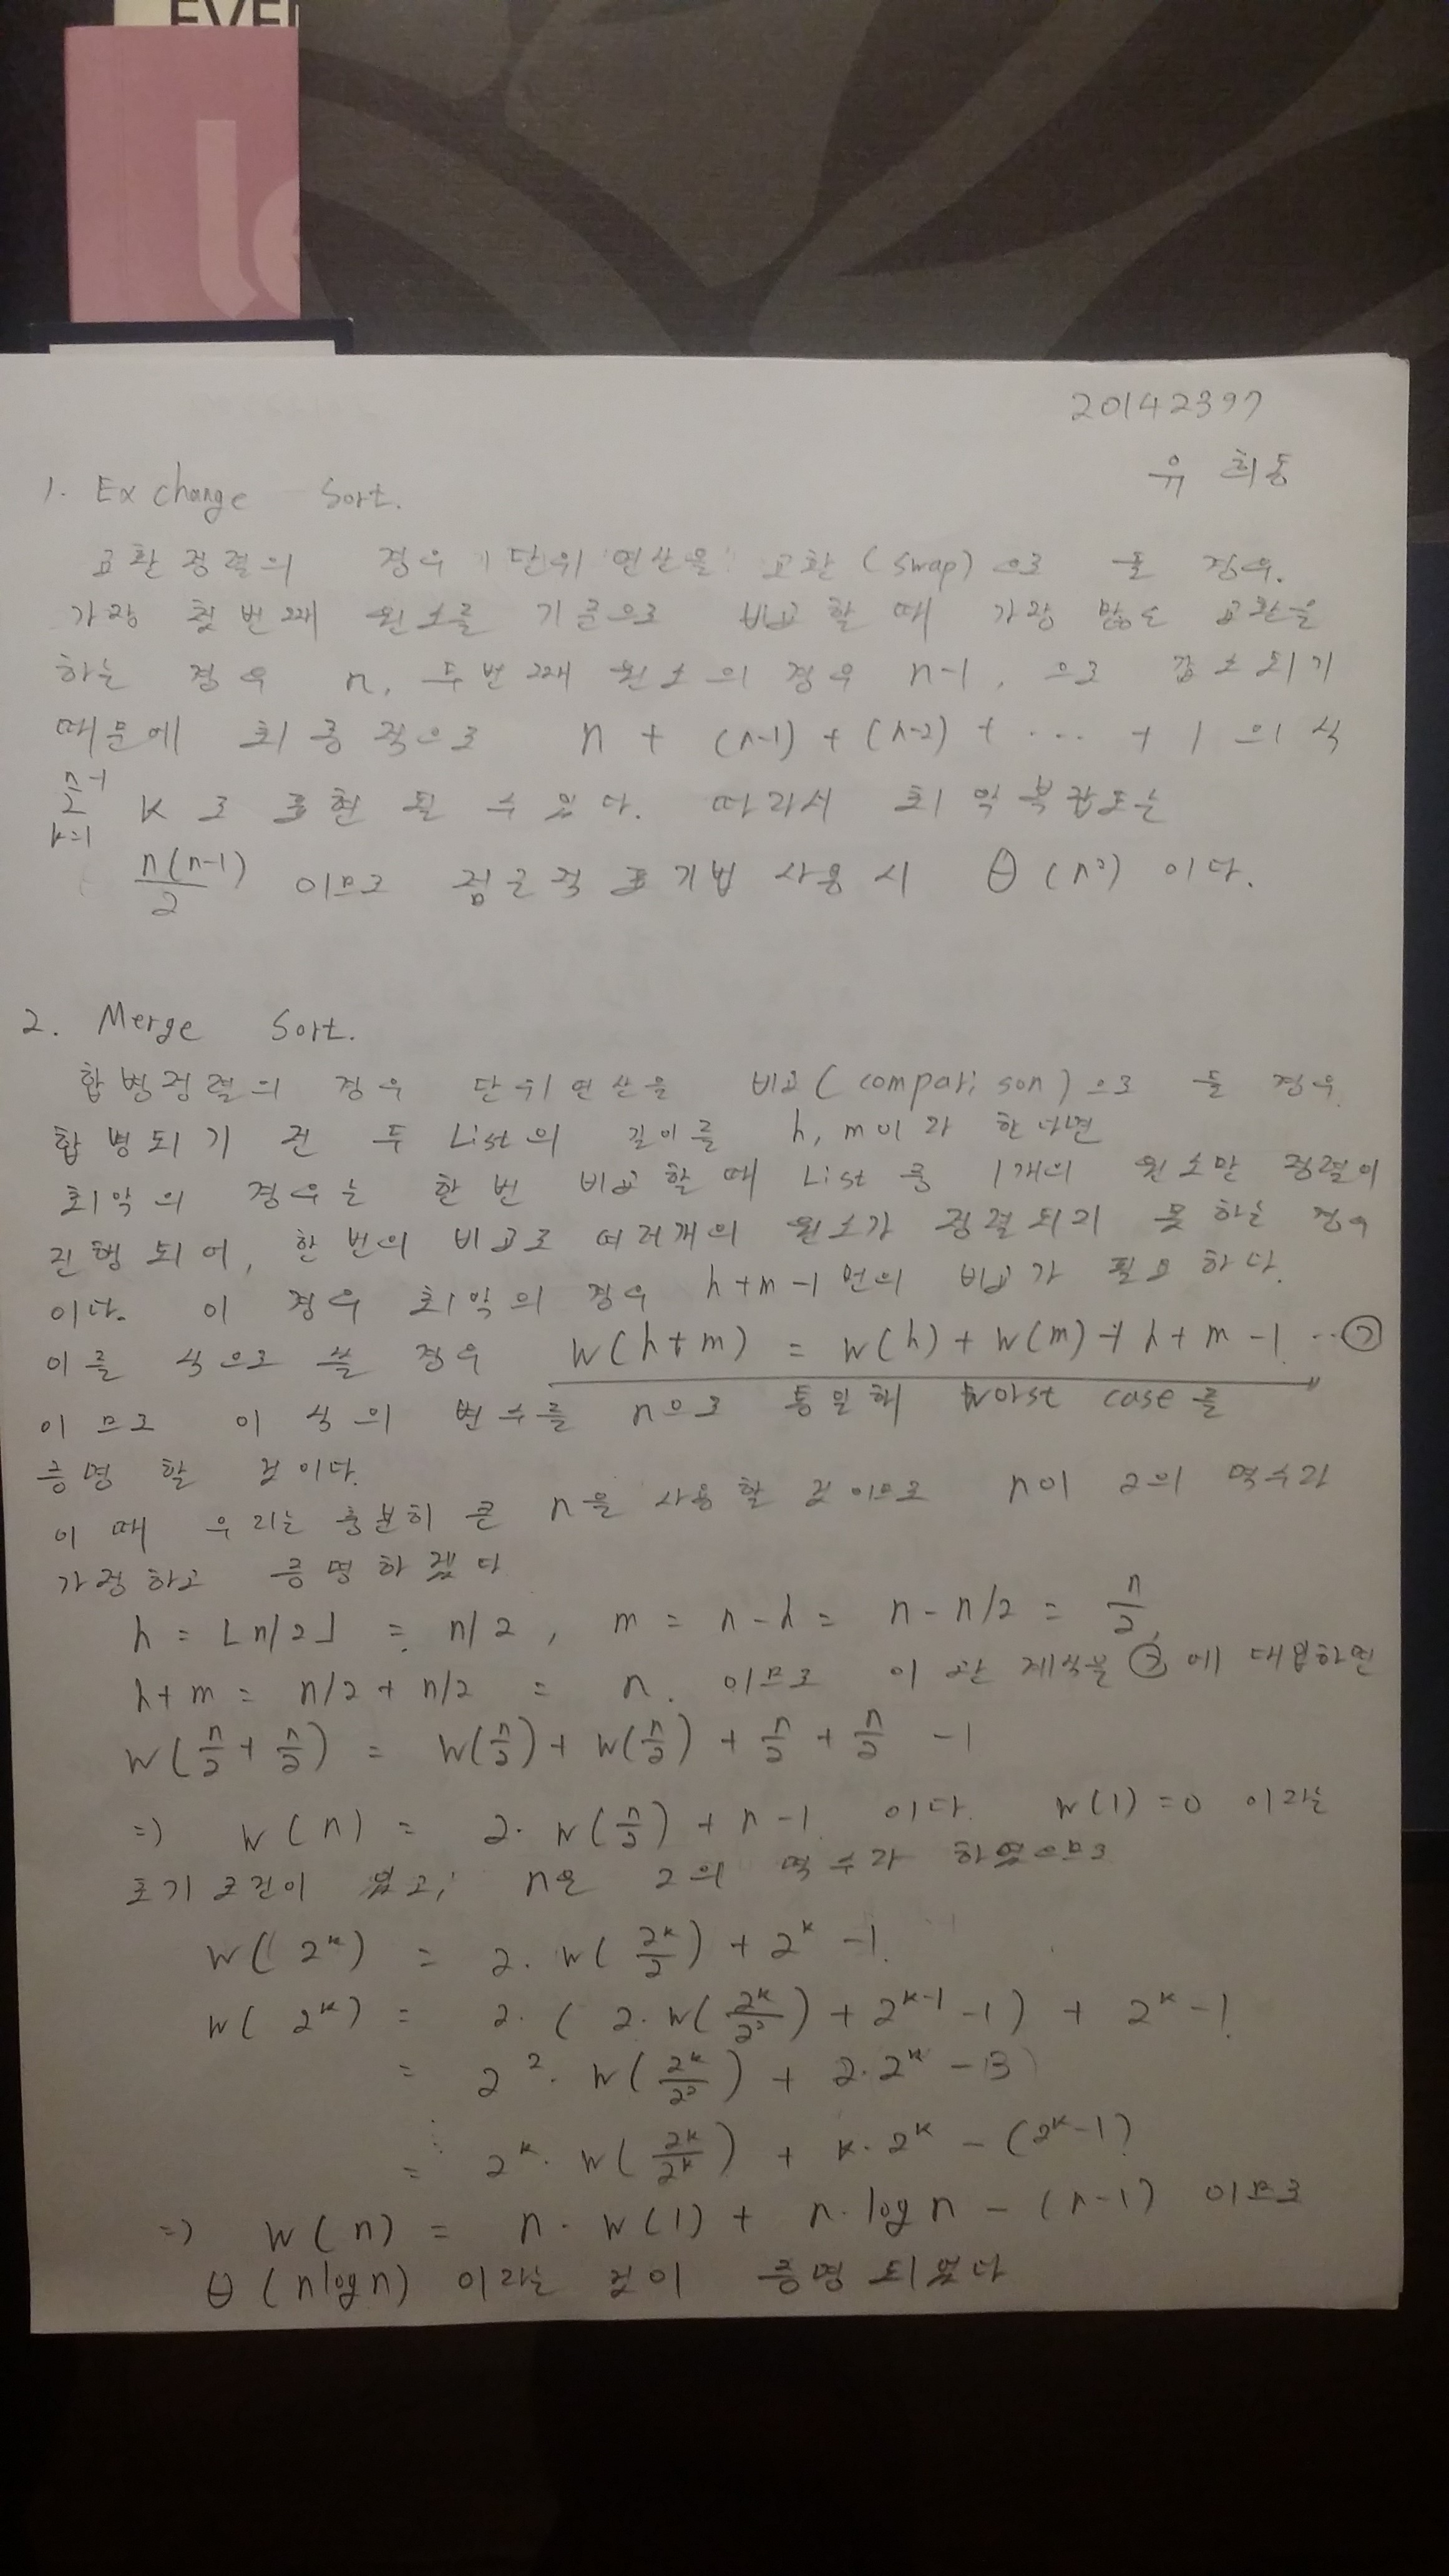 EVE
le
20142397
유희동
1. Exchange Sort.
교환정렬의 경우 단위연산을 교환(swap)으로 둘 경우.
가장 첫번째 원소를 기준으로 비교할 때 가장 많은 교환을
하는 경우 n, 두번째 원소의 경우 n-1, 으로 감소되기
때문에 최종적으로 n + (n-1) + (n-2) + ... + 1 의 식
n-1 Σ k=1 K로 표현될 수 있다. 따라서 최악복잡도는
n(n-1)/2 이므로 점근적 표기법 사용시 θ(n²) 이다.
2. Merge Sort.
합병정렬의 경우 단위연산을 비교(comparison)으로 둘 경우.
합병되기 전 두 List의 길이를 h, m이라 한다면
최악의 경우는 한번 비교할 때 List 중 1개의 원소만 정렬이
진행되어, 한번의 비교로 여러개의 원소가 정렬되지 못하는 경우
이다. 이 경우 최악의 경우 h+m-1번의 비교가 필요하다.
이를 식으로 쓸 경우 W(h+m) = W(h) + W(m) + h + m - 1 ...
이므로 이 식의 변수를 n으로 통일해 worst case를
증명할 것이다.
이때 우리는 충분히 큰 n을 사용할 것이므로 n이 2의 멱수라
가정하고 증명하겠다
h = ⌊n/2⌋ = n/2, m = n-h = n-n/2 = n/2,
h+m = n/2 + n/2 = n. 이므로 이 관계식을 에 대입하면
W(n/2 + n/2) = W(n/2) + W(n/2) + n/2 + n/2 - 1
=> W(n) = 2·W(n/2) + n-1 이다. W(1)=0 이라는
초기조건이 있고, n은 2의 멱수라 하였으므로
W(2^k) = 2·W(2^k/2) + 2^k - 1.
W(2^k) = 2·(2·W(2^k/2²) + 2^k-1 - 1) + 2^k - 1
= 2²·W(2^k/2²) + 2·2^k - 3
⋮
= 2^k·W(2^k/2^k) + k·2^k - (2^k-1)
=> W(n) = n·W(1) + n·log n - (n-1) 이므로
θ(nlogn) 이라는 것이 증명되었다